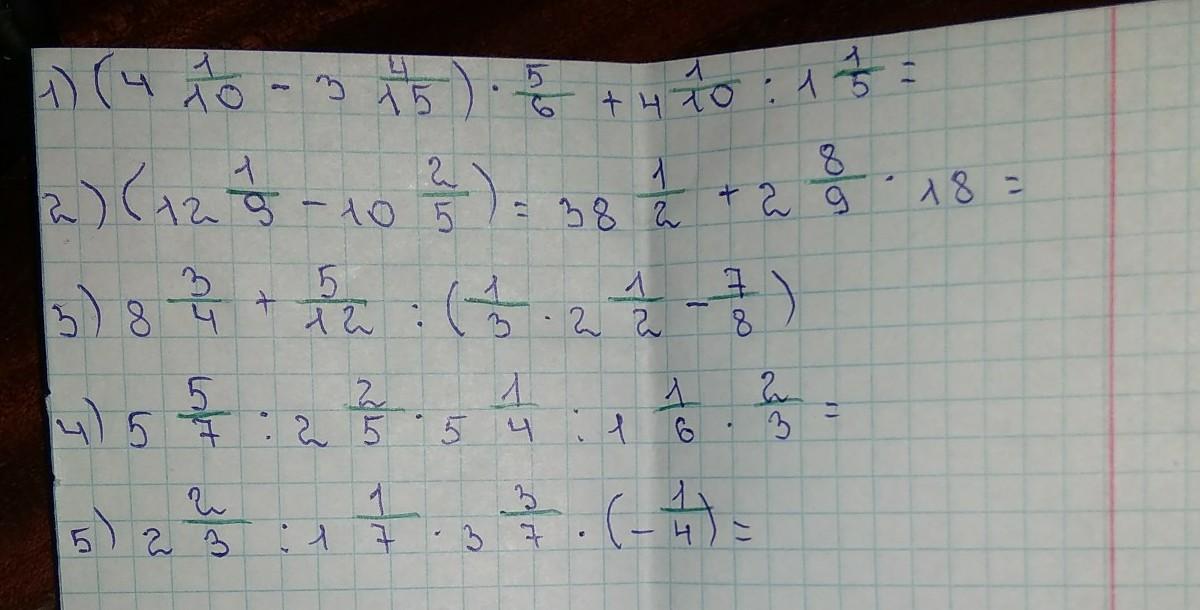 1) (4 1/10 - 3 4/15) · 5/6 + 4 1/10 : 1 1/5 =
2) (12 1/9 - 10 2/5) = 38 1/2 + 2 8/9 · 18 =
3) 8 3/4 + 5/12 : (1/3 · 2 1/2 - 7/8)
4) 5 5/7 : 2 2/5 · 5 1/4 : 1 1/6 · 2/3 =
5) 2 2/3 : 1 1/7 · 3 3/7 · (- 1/4) =